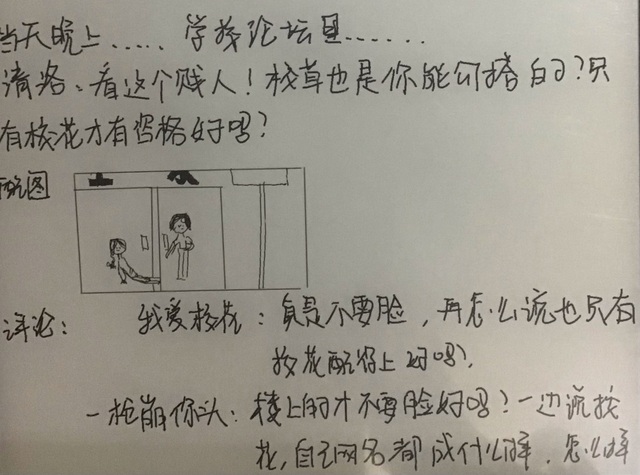 当天晚上.....学校论坛里......
清洛：看这个贱人！校草也是你能勾搭的？只
有校花才有资格好吗？
配图
评论： 我爱校花：真是不要脸，再怎么说也只有
校花配得上好吗？
一枪崩你头：楼上的才不要脸好吗？一边说校
花，自己网名都成什么样，怎么样